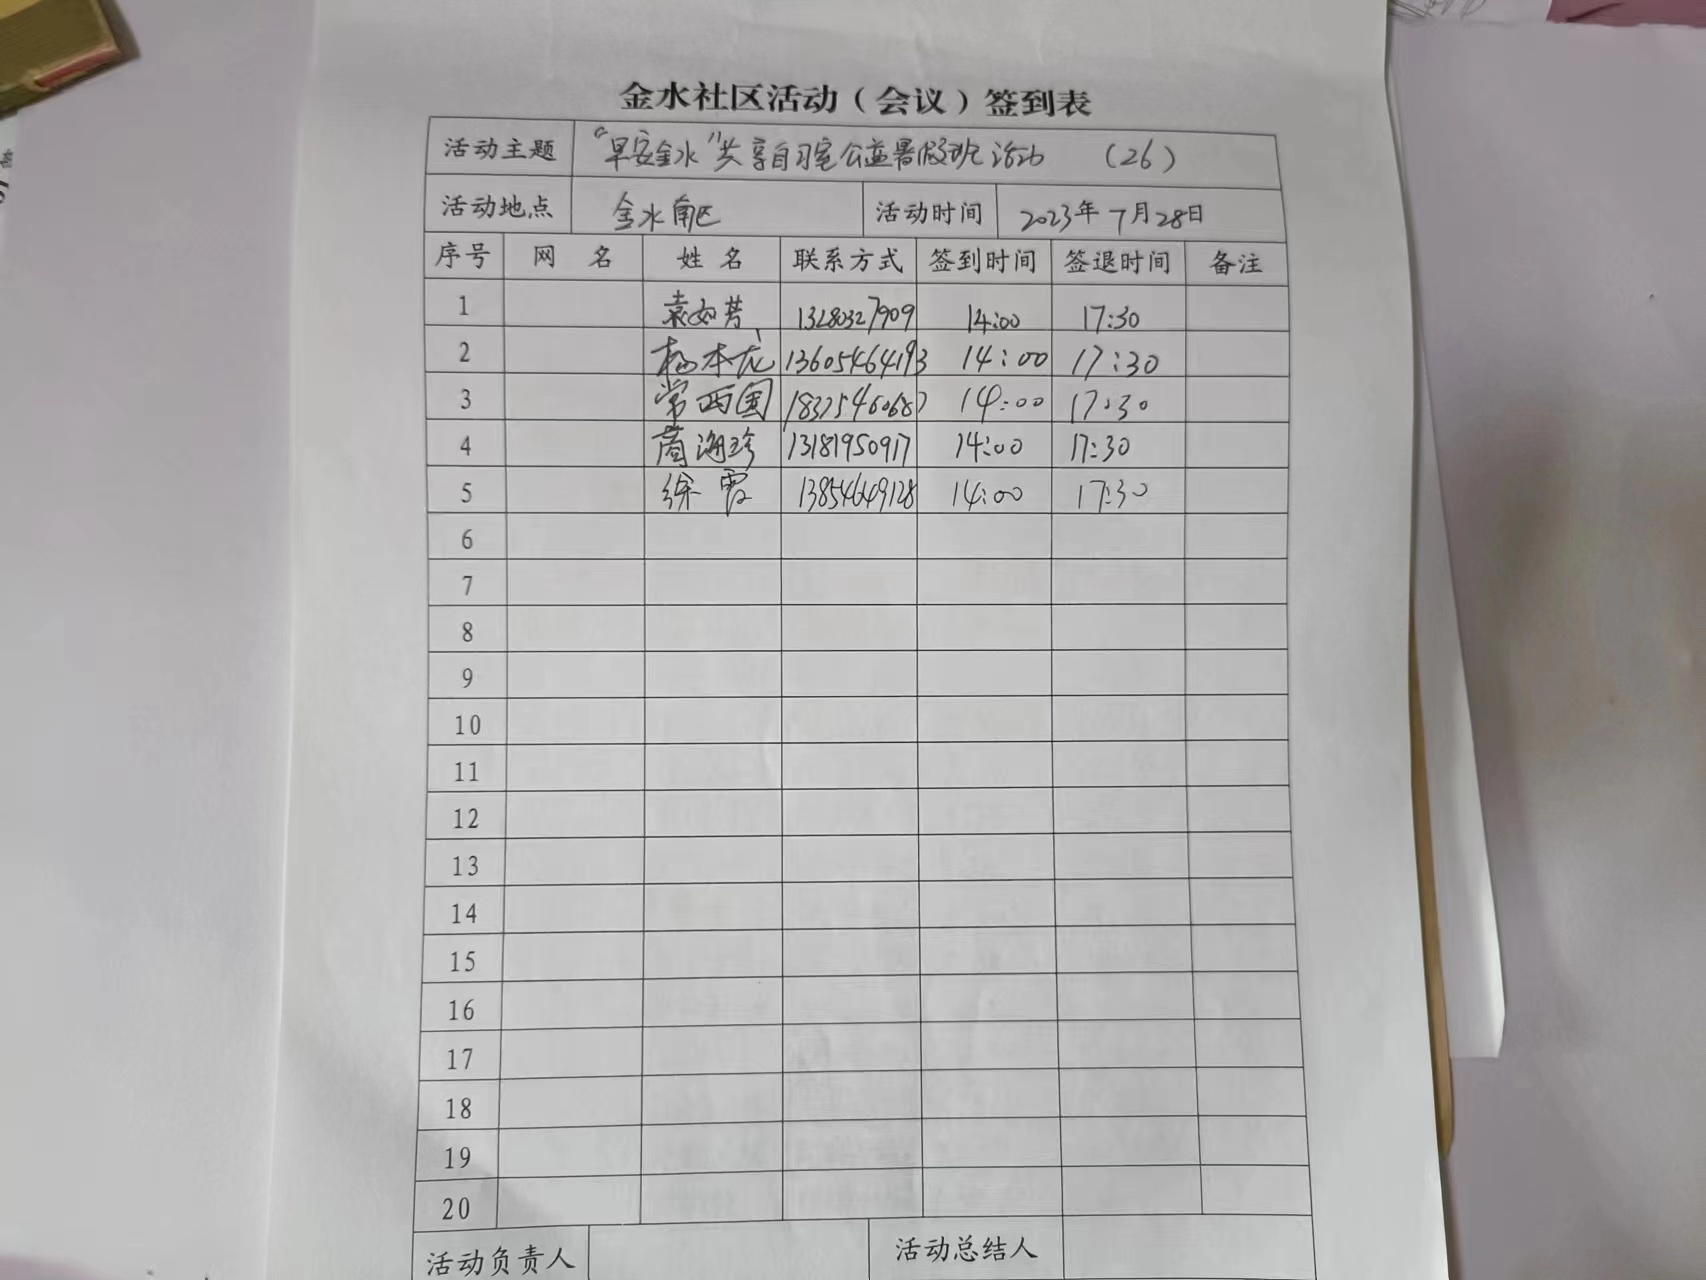 金水社区活动（会议）签到表
活动主题 “早安金水”共享自习室公益暑假班活动 （26）
活动地点 金水南区 活动时间 2023年7月28日
序号 网 名 姓 名 联系方式 签到时间 签退时间 备注
1 袁如芳 13280327909 14:00 17:30
2 杨本龙 13605464193 14:00 17:30
3 常西国 18375460687 14:00 17:30
4 商海珍 13181950917 14:00 17:30
5 徐霞 13854649128 14:00 17:30
6
7
8
9
10
11
12
13
14
15
16
17
18
19
20
活动负责人 活动总结人